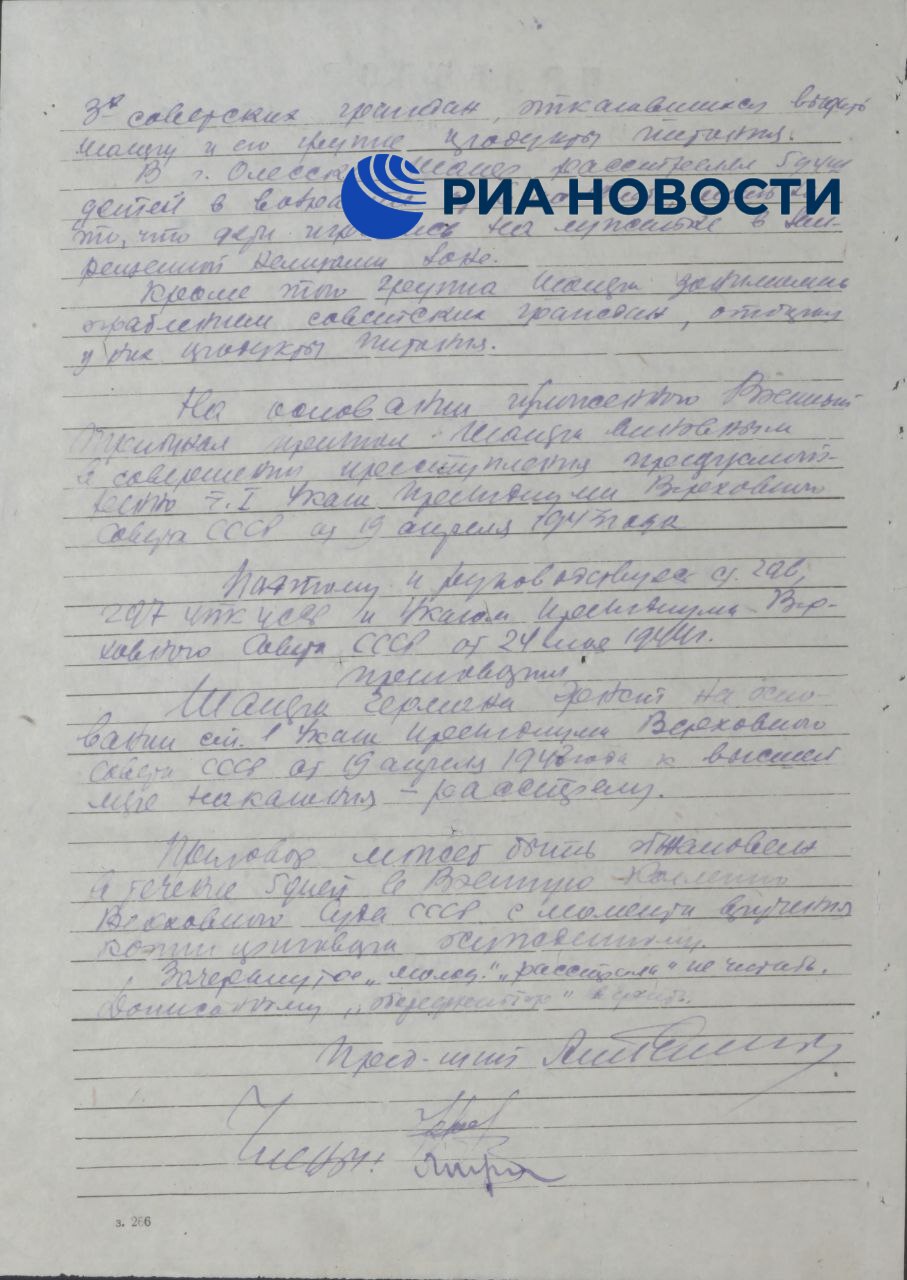 3х советских граждан, отказавшихся выдать
Шанцу и его группе продукты питания.
В г. Одесса Шанц расстрелял 5 душ
детей в возра
РИА НОВОСТИ
то, что дети игрались на лужайке в зап-
рещенной немцами зоне.
Кроме того группа Шанца занималась
ограблением советских граждан, отбирая
у них продукты питания.
На основании изложенного Военный
Трибунал признал Шанца виновным
в совершении преступления предусмот-
ренно ст. I Указа Президиума Верховного
Совета СССР от 19 апреля 1943 года
Поэтому и руководствуясь ст. 296,
297 УПК УССР и Указом Президиума Вер-
ховного Совета СССР от 24 мая 1944 г.
приговорил
Шанца Германа Эрнст на осно-
вании ст. 1 Указа Президиума Верховного
Совета СССР от 19 апреля 1943 года к высшей
мере наказания – расстрелу.
Приговор может быть обжалован
в течение 5 дней в Военную Коллегию
Верховного Суда СССР с момента вручения
копии приговора осужденному.
Зачеркнутое „ “ „расстрела“ не читать.
Дописанному верить.
Пред-щий
Члены:
з. 266